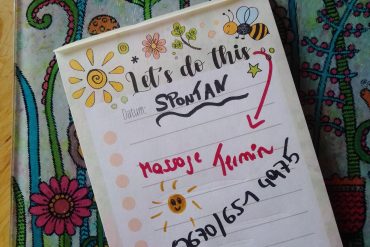 Let's do this
Datum: SPONTAN
Massage Termin
0670/651 4975